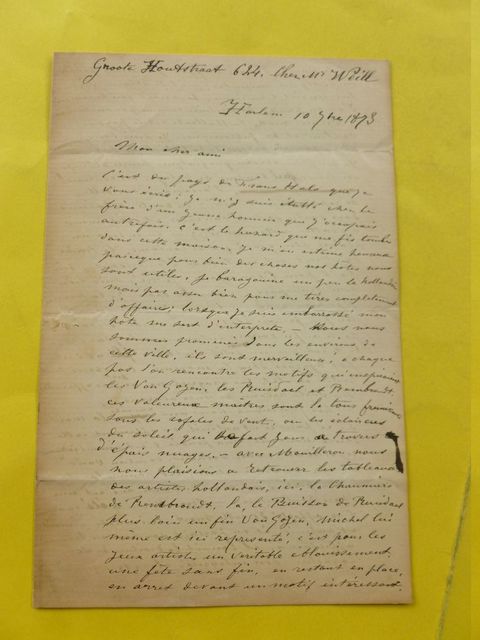 Groote Houtstraat 624. Chez Mr Weill
Harlem 10 9bre 1873
Mon cher ami
C'est du pays de Frans Hals que je
vous écris; je m'y suis établi chez le
frère d'un jeune homme que j'occupais
autrefois. C'est le hazard qui me fis tomber
dans cette maison. Je m'en estime heureux
parceque pour bien des choses nos hotes nous
sont utiles, je baragouine un peu le hollandais
mais pas assez bien pour me tirer complètement
d'affaires; lorsque je suis embarrassé mon
hôte me sert d'interprete, – Nous nous
sommes promenés dans les environs de
cette ville, ils sont merveilleux, a chaque
pas l'on rencontre les motifs qui inspirèrent
les Van Goyen, les Ruisdael et Rembrandt,
ces valeureux maitres sont la tous
sous les rafales de vent, ou les éclaircies
du soleil qui se fait jour a travers
d'épais nuages. – avec Mouilleron nous
nous plaisions a retrouver les tableaux
des artistes hollandais, ici, la chaumière
de Rembrandt, la, le Buisson de Ruisdael
plus loin un fin Van Goyen, Michel lui
même est ici représenté, c'est pour les
yeux artistes un veritable éblouissement,
une fête sans fin, en restant en place,
en arret devant un motif intéressant,